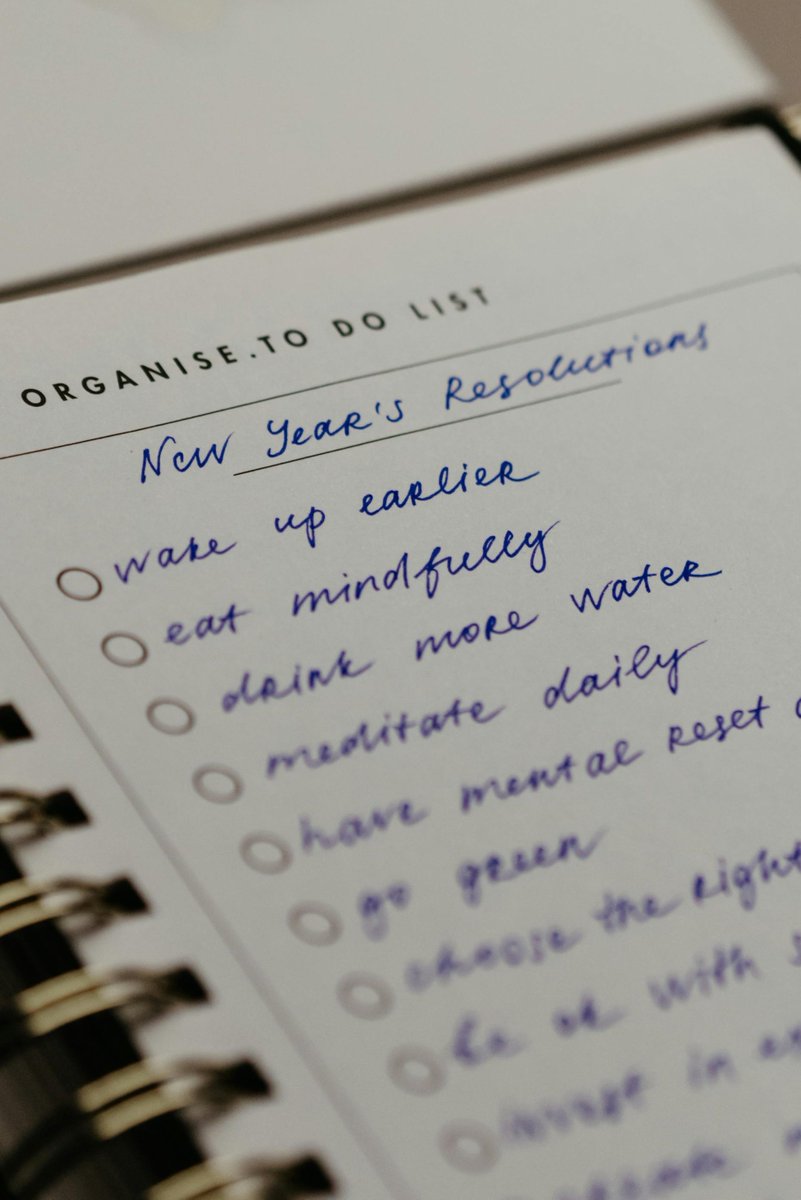 ORGANISE.TO DO LIST
New Year's Resolutions
wake up earlier
eat mindfully
drink more water
meditate daily
have mental reset
go green
choose the right
be ok with
invest in